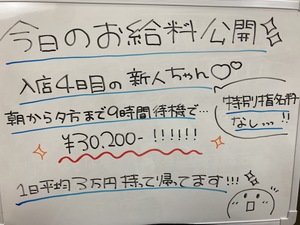 今日のお給料公開
入店4日目の新人ちゃん♡♡
朝から夕方まで9時間待機で…
特別指名料
なし…!!
¥30.200-!!!!!!
1日平均3万円持って帰ってます!!!